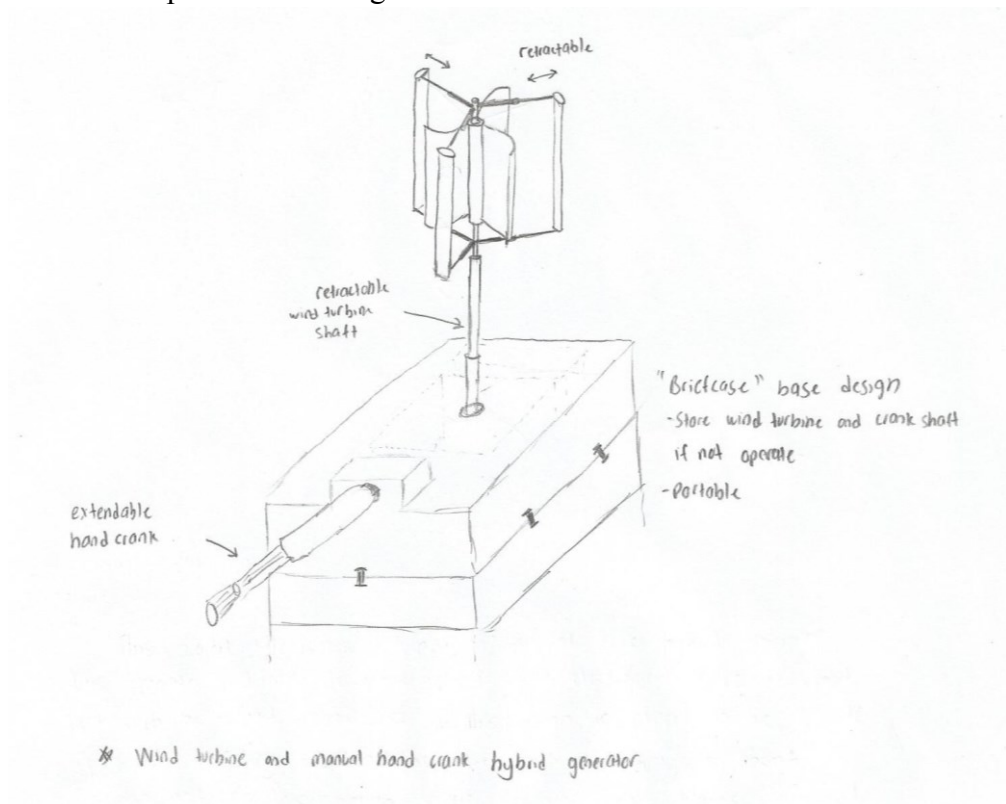 retractable
retractable
wind turbine
shaft
"Briefcase" base design
-Store wind turbine and crank shaft
if not operate
-Portable
extendable
hand crank
* Wind turbine and manual hand crank hybrid generator